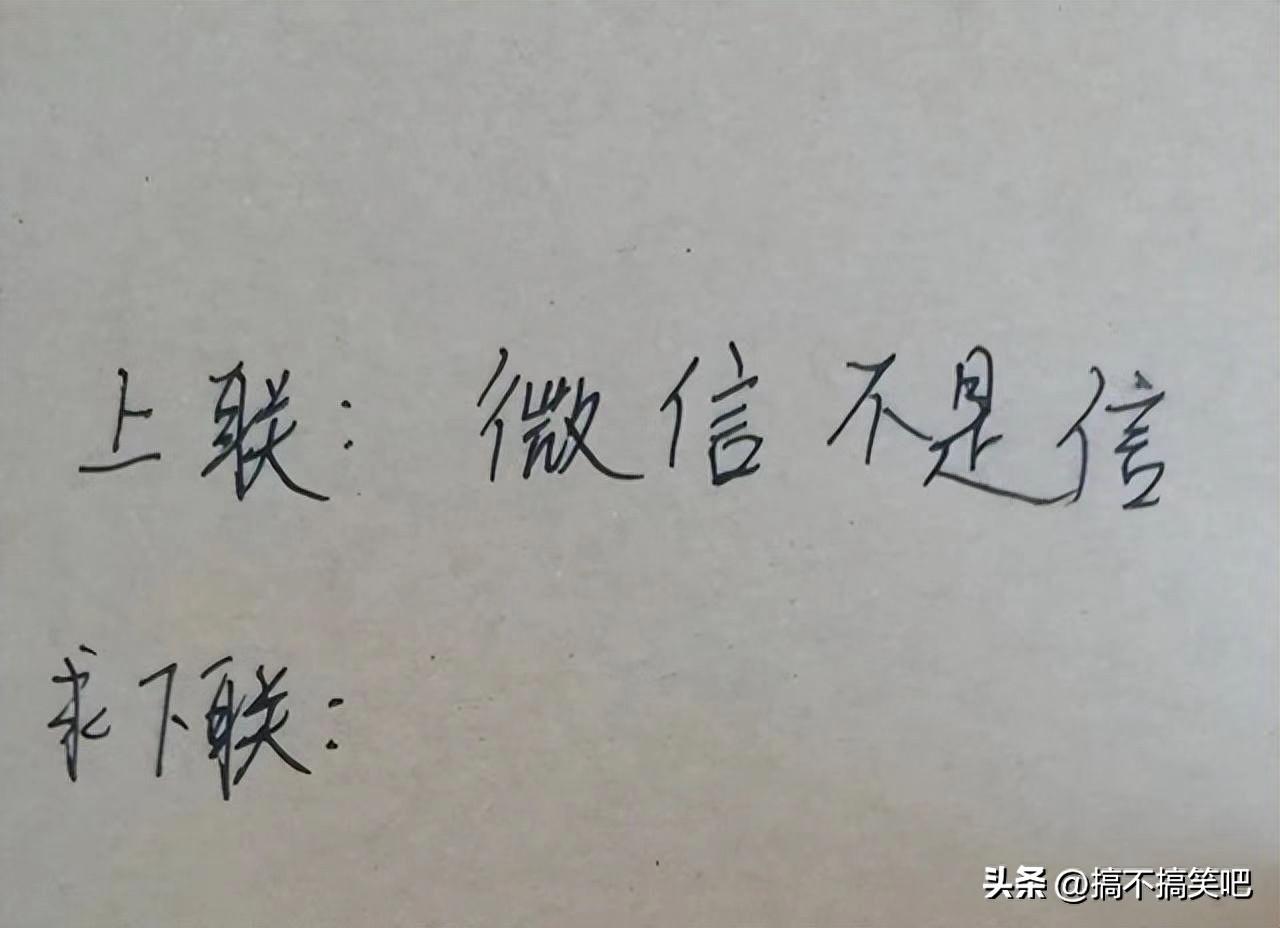 上联：微信不是信
求下联：
头条 @搞不搞笑吧